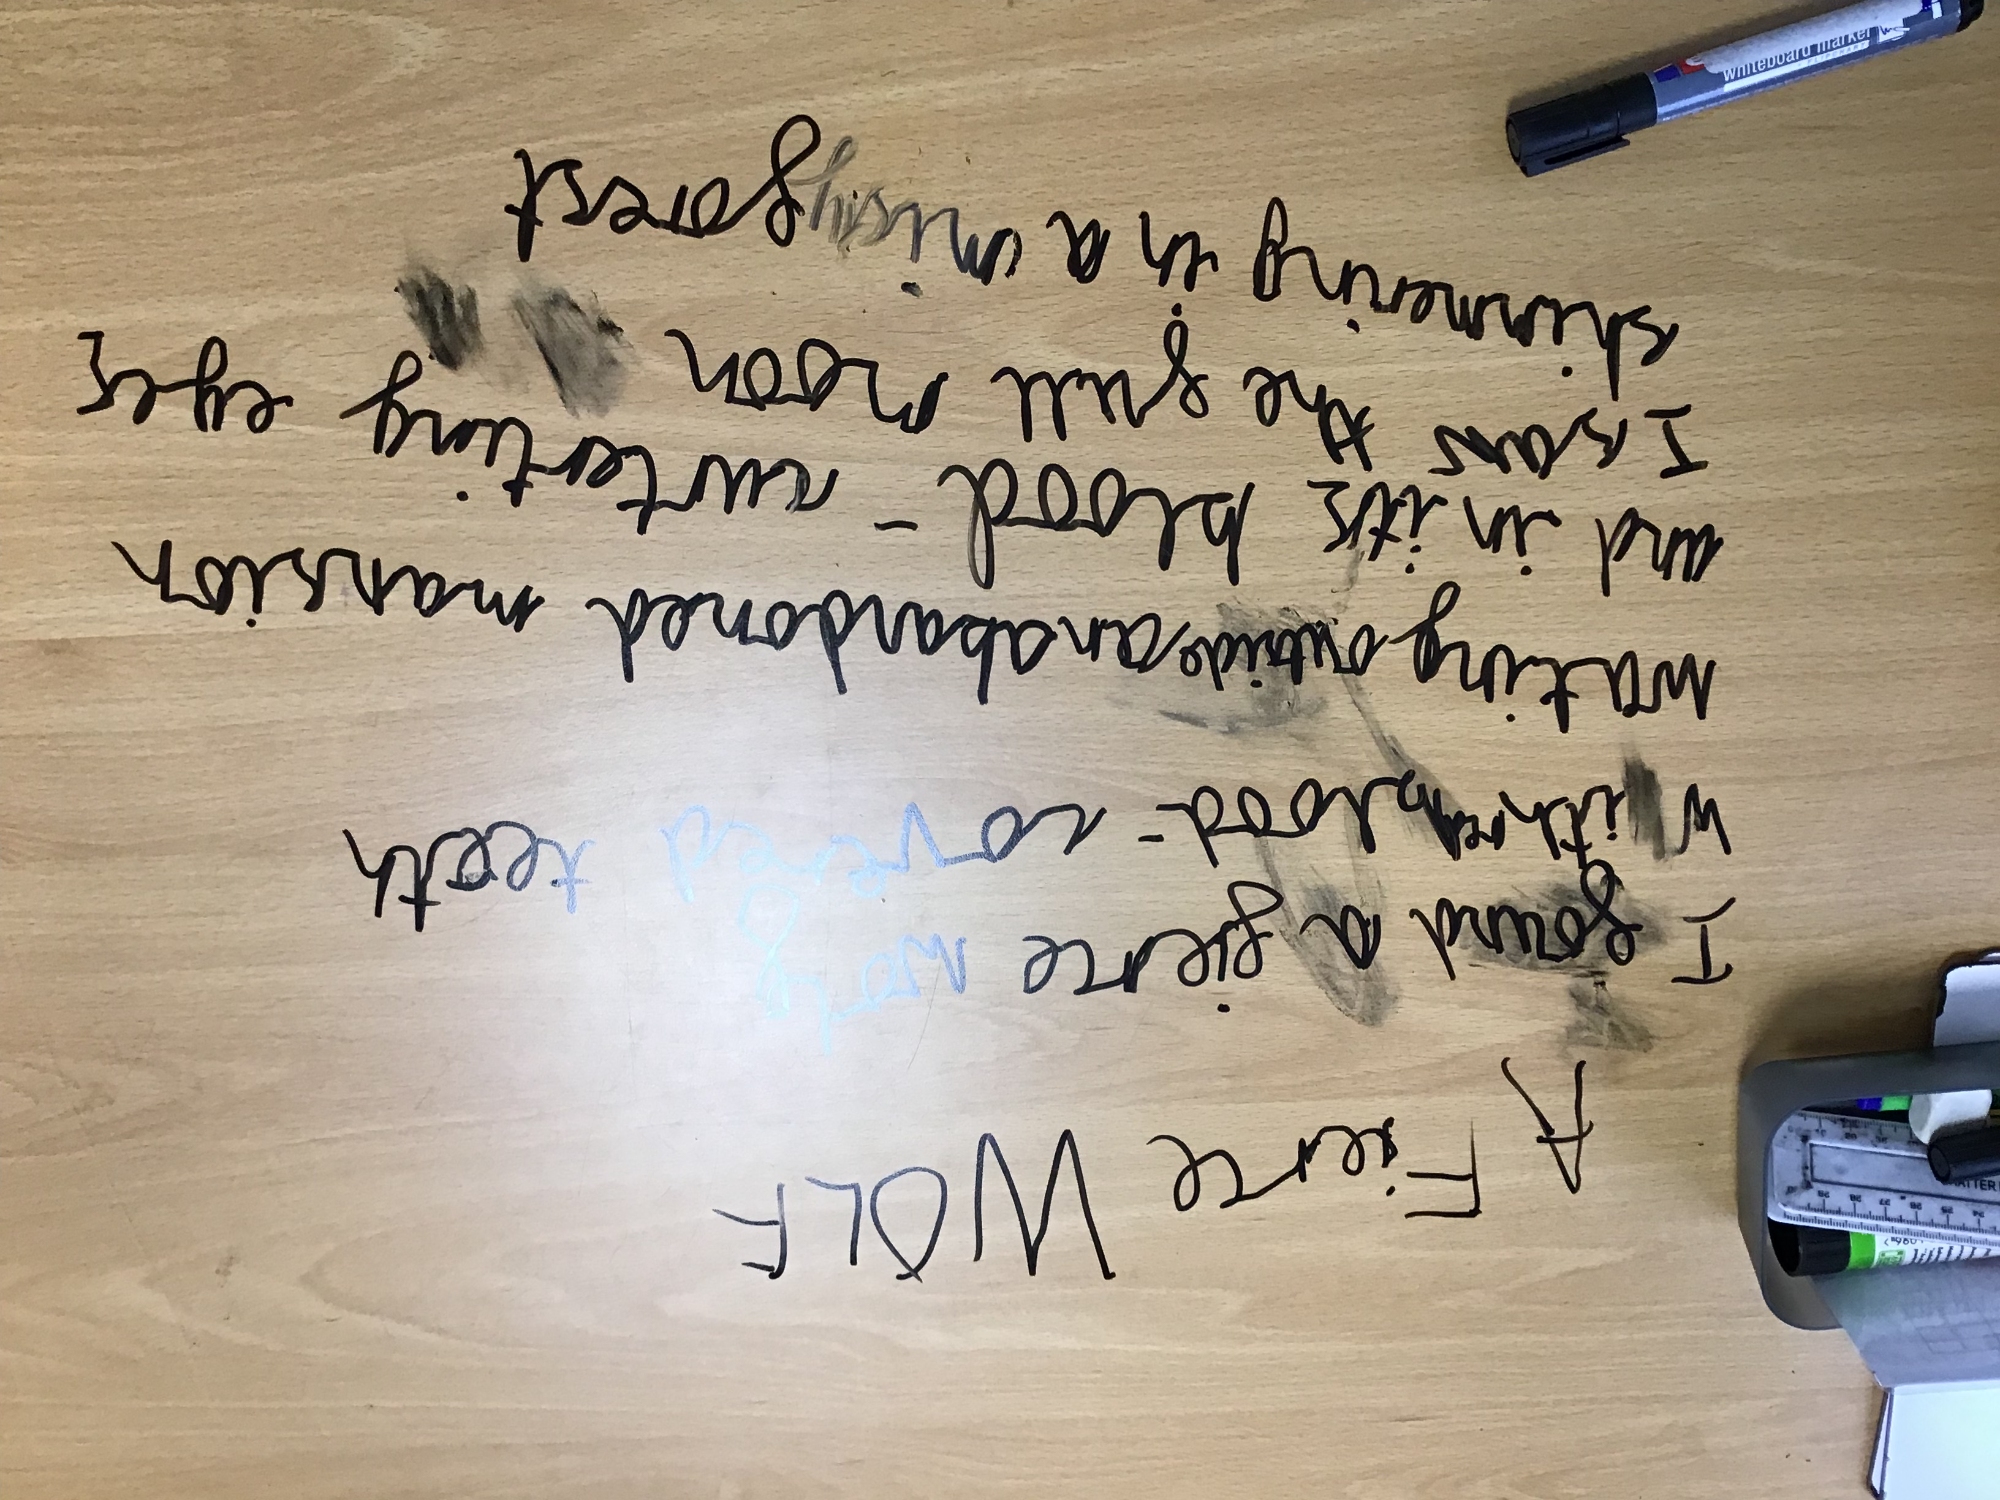 A Fierce WOLF
I found a fierce wolf
With blood- covered teeth
wating outside an abandoned mansion
and in it's blood - curterting eyes,
I saw the full moon
shimmering in a misty forest
whiteboard marker